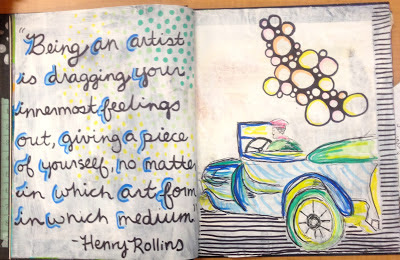 "Being an artist
is dragging your
innermost feelings
out, giving a piece
of yourself, no matter
in which art form
in which medium"
~Henry Rollins